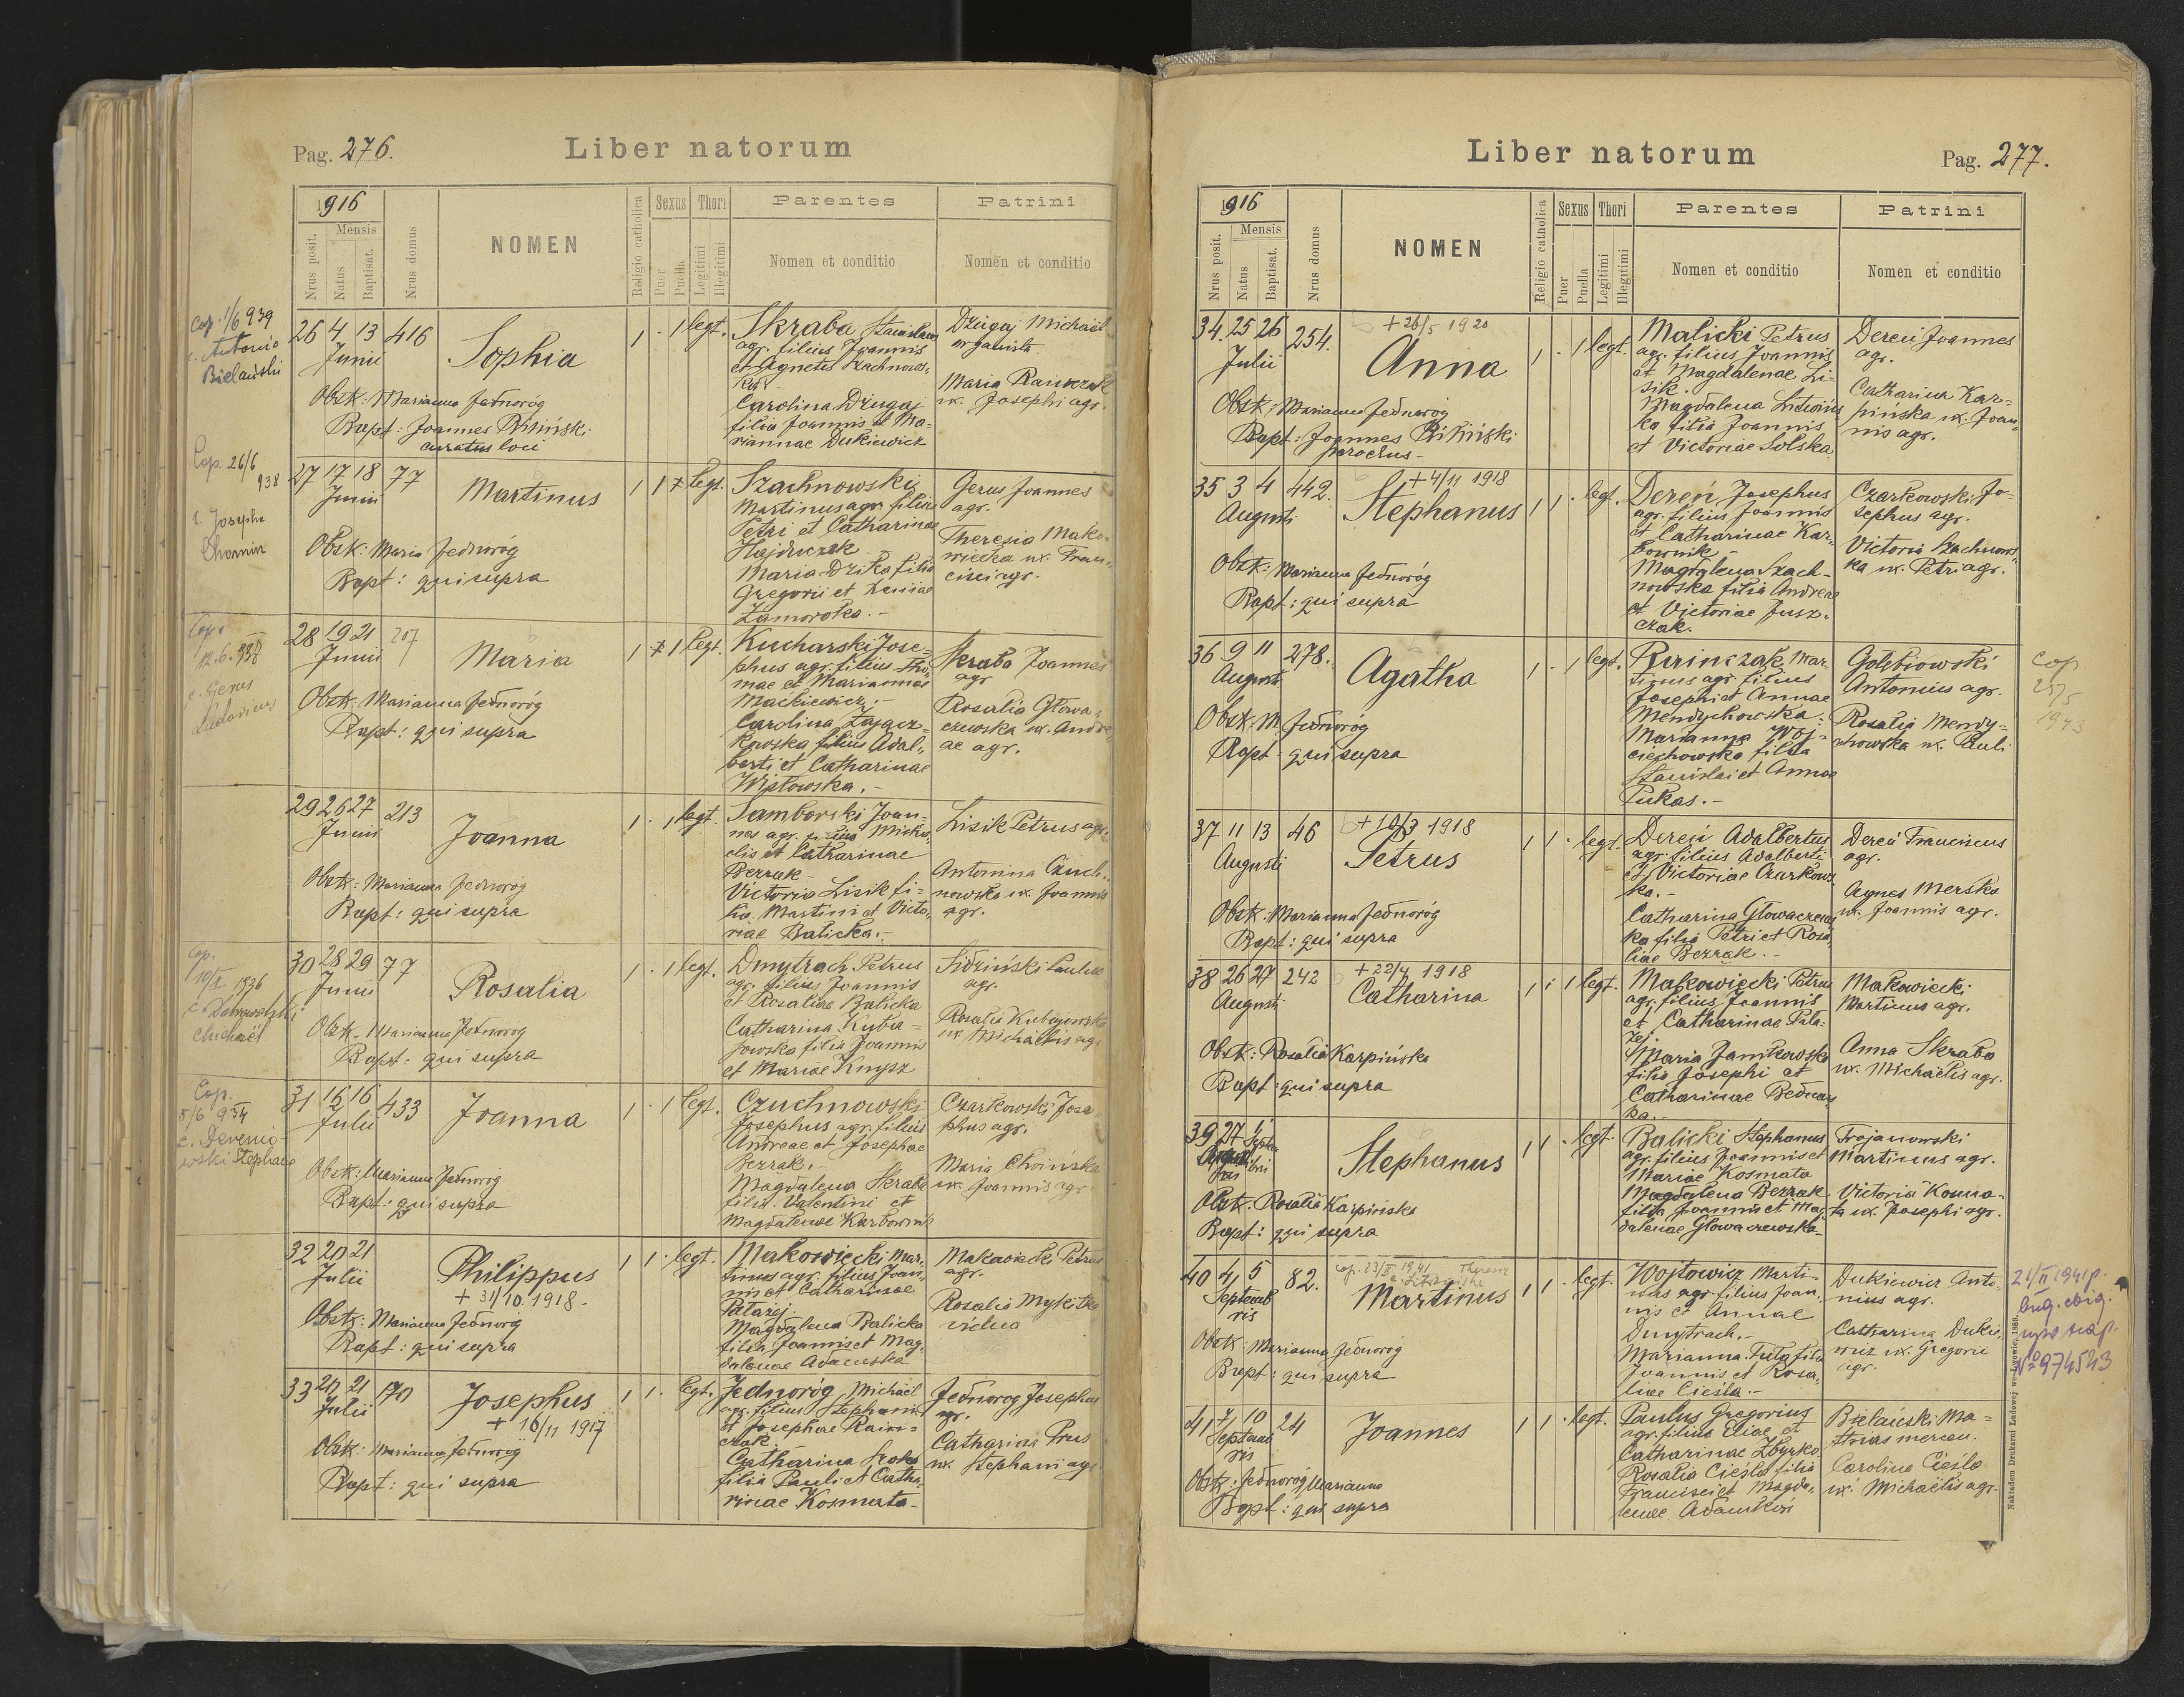 Pag. 276.
Liber natorum
1916
Nrus posit.
Mensis
Natus
Baptisat.
Nrus domus
NOMEN
Religio catholica
Sexus
Puer
Puella
Thori
Legitimi
Illegitimi
Parentes
Nomen et conditio
Patrini
Nomen et conditio
Cop. 1/6 939
c. Antonio
Bielański
26 4 13 416
Junii
Sophia
1 - 1 legt.
Obstr: Marianna Jednoróg
Bapt: Joannes
curatus loci
Skraba Stanislaus
agr. filius Joannis
et Agnetis Szachnows-
Carolina Dżugaj
filia Joannis et Ma-
riannae Dukiewicz
Dżugaj Michaël
organista
Maria
ux. Josephi agr.
Cop. 26/6
938
c. Josepha
27 17 18 77
Junii
Martinus
1 1 legt.
Obstr: Maria Jednoróg
Bapt: qui supra
Szachnowski
Martinus agr. filius
Petri et Catharinae
Hajduczek
Maria Dzika filia
Gregorii et
Zamoroka.-
Gerus Joannes
agr.
Theresia Mako-
wiecka ux. Fran-
cisci agr.
Cop.
12.6. 938
c. Gerus
Ludovicus
28 19 21 207
Junii
Maria
1 1 legt.
Obstr: Marianna Jednoróg
Bapt: qui supra
Kucharski Jose-
phus agr. filius Tho-
mae et Mariannae
Mackiewicz.-
Carolina Zając-
kowska filius Adal-
berti et Catharinae
Wistowska.-
Skraba Joannes
agr
Rosalia Głowa-
czewska ux. Andre-
ae agr.
29 26 27 213
Junii
Joanna
1 - 1 legt.
Obstr: Marianna Jednoróg
Bapt: qui supra
Samborski Joan-
nes agr. filius Micha-
elis et Catharinae
Bezrak-
Victoria Lisik fi-
lia Martini et Victo-
riae Balicka.-
Lisik Petrus agr.
Antonina Czuch-
nowska ux. Joannis
agr.
Cop.
10/X 1936
Michaël
30 28 29 77
Junii
Rosalia
1 - 1 legt.
Obstr. Marianna Jednoróg
Bapt: qui supra
Dmytrach Petrus
agr. filius Joannis
et Rosaliae Balicka
Catharina Kuba-
jowska filia Joannis
et Mariae Knysz
Sidziński Paulus
agr.
Rosalia Kubajowska
ux. Michaëlis agr.
Cop.
5/6 934
c. Derenio-
wski Stephano
31 16 16 433
Julii
Joanna
1 - 1 legt.
Obstr: Marianna Jednoróg
Bapt: qui supra
Czuchnowski
Josephus agr. filius
Andreae et Josephae
Bezrak.-
Magdalena Skraba
filia Valentini et
Magdalenae Karbownik
Czarkowski Jose-
phus agr.
Maria Choińska
ux. Joannis agr.
32 20 21
Julii
Philippus
+ 31/10. 1918.-
1 1 - legt.
Obstr: Marianna Jednoróg
Bapt: qui supra
Makowiecki Mar-
tinus agr. filius Joan-
nis et Catharinae
Patałej.
Magdalena Balicka
filia Joannis et Mag-
dalenae Adamska
Makowiecki Petrus
agr.
Rosalia Mykitka
vidua
33 20 21 170
Julii
Josephus
+ 16/11 1917
1 1 - legt.
Obstr: Marianna Jednoróg
Bapt: qui supra
Jednoróg Michaël
agr. filius Stephani
et Josephae
Catharina Sroka
filia Pauli et Catha-
rinae Kosmata-
Jednorog Josephus
agr.
Catharina Prus
ux. Stephani agr.
Liber natorum
Pag. 277.
1916
Nrus posit.
Mensis
Natus
Baptisat.
Nrus domus
NOMEN
Religio catholica
Sexus
Puer
Puella
Thori
Legitimi
Illegitimi
Parentes
Nomen et conditio
Patrini
Nomen et conditio
34. 25 26 254.
Julii
+ 26/5 1920
Anna
1 - 1 legt.
Obstr: Marianna Jednoróg
Bapt: Joannes
parochus-
Malicki Petrus
agr. filius Joannis
et Magdalenae Li-
sik.
Magdalena
filia Joannis
et Victoriae Solska
Dereń Joannes
agr.
Catharina Kar-
pińska ux. Joan-
nis agr.
35 3 4 442.
Augusti
+ 4/11 1918
Stephanus
1 1 - legt.
Obstr: Marianna Jednoróg
Bapt: qui supra
Dereń Josephus
agr. filius Joannis
et Catharinae Kar-
bownik-
Magdalena Szach-
nowska filia Andreae
et Victoriae Jusz-
czak.
Czarkowski Jo-
sephus agr.
Victoria Szachnows-
ka ux. Petri agr.
36 9 11 278.
Augusti
Agatha
1 - 1 legt.
Obstr. M. Jednoróg
Bapt: qui supra
Mar-
tinus agr. filius
Josephi et Annae
Mendychowska.
Marianna Woj-
ciechowska filia
Stanislai et Annae
Pukas.-
Gołębiowski
Antonius agr.
Rosalia Mendy-
chowska ux. Pauli
Cop.
25/5
1943
37 11 13 46
Augusti
+ 10/3 1918
Petrus
1 1 - legt.
Obstr: Marianna Jednoróg
Bapt: qui supra
Dereń Adalbertus
agr. filius Adalberti
et Victoriae Czarkows-
ka.-
Catharina Głowaczews-
ka filia Petri et Rosa-
liae Bezrak.-
Dereń Franciscus
agr.
Agnes Merska
ux. Joannis agr.
38 26 27 242
Augusti
+ 22/4 1918
Catharina
1 - 1 legt.
Obstr: Rosalia Karpińska
Bapt: qui supra
Makowiecki Petrus
agr. filius Joannis
et Catharinae Pata-
łej.
Maria Janikowska
filia Josephi et
Catharinae Bednars-
ka.-
Makowiecki
Martinus agr.
Anna Skraba
ux. Michaëlis agr.
39 27 1
Stephanus
1 1 - legt.
Obstr. Rosalia Karpińska
Bapt: qui supra
Balicki Stephanus
agr. filius Joannis et
Mariae Kosmata
Magdalena Bezrak
filia Joannis et Mag-
dalenae Głowaczewska-
Trojanowski
Martinus agr.
Victoria Kosma-
ta ux. Josephi agr.
40 4 5 82.
Septemb
ris
Cop. 23/II 1941
Martinus
1 1 - legt.
Obstr: Marianna Jednoróg
Bapt: qui supra
Wojtowicz Marti-
nus agr. filius Joan-
nis et Annae
Dmytrach.-
Marianna Tuta filia
Joannis et Rosa-
liae Cieśla.-
Dukiewicz Anto-
nius agr.
Catharina Dukie-
wicz ux. Gregorii
agr.
21/II 1941 r.
No 974543
41 7 10 24
Septemb
ris
Joannes
1 1 - legt.
Obstr: Jednoróg Marianna
Bapt: qui supra
Paulus Gregorius
agr. filius Eliae et
Catharinae Zbyrko
Rosalia Cieśla filia
Francisci et Magda-
lenae
Bielański Ma-
thias mercen.
Carolina Cieśla
ux. Michaëlis agr.
Nakładem Drukarni Ludowej we Lwowie, 1889.